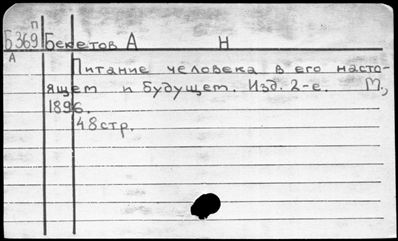 П
Б369 Бекетов А Н
А
Питание человека в его насто-
ящем и будущем. Изд. 2-е. М.,
1896.
48 стр.